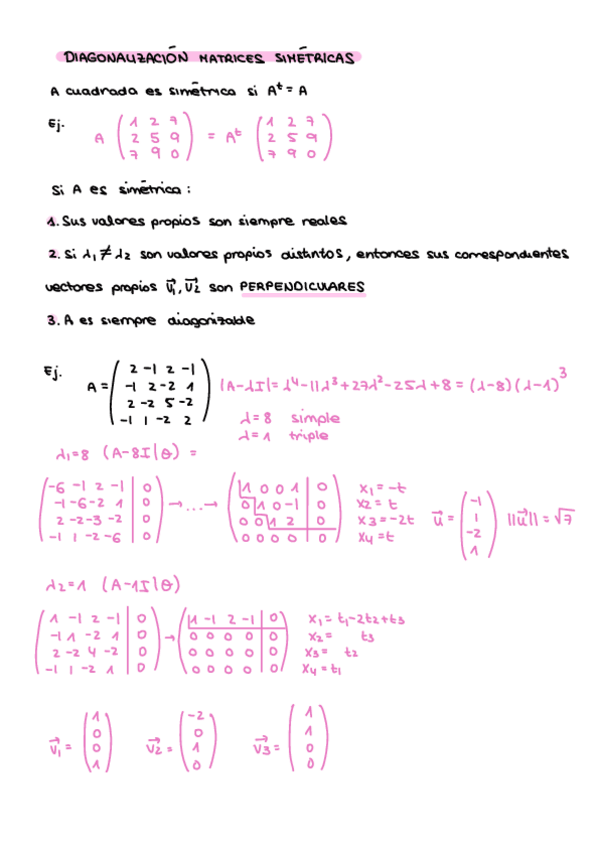 DIAGONALIZACIÓN MATRICES SIMÉTRICAS
A cuadrada es simétrica si Aᵗ = A
Ej. A ( 1 2 7 ; 2 5 9 ; 7 9 0 ) = Aᵗ ( 1 2 7 ; 2 5 9 ; 7 9 0 )
Si A es simétrica:
1. Sus valores propios son siempre reales
2. Si λ₁ ≠ λ₂ son valores propios distintos, entonces sus correspondientes
vectores propios v⃗₁, v⃗₂ son PERPENDICULARES
3. A es siempre diagonizable
Ej. A = ( 2 -1 2 -1 ; -1 2 -2 1 ; 2 -2 5 -2 ; -1 1 -2 2 ) |A-λI| = λ⁴-11λ³+27λ²-25λ+8 = (λ-8)(λ-1)³
λ=8 simple
λ=1 triple
λ₁=8 (A-8I|θ) =
( -6 -1 2 -1 | 0 ; -1 -6 -2 1 | 0 ; 2 -2 -3 -2 | 0 ; -1 1 -2 -6 | 0 ) → ... → ( 1 0 0 1 | 0 ; 0 1 0 -1 | 0 ; 0 0 1 2 | 0 ; 0 0 0 0 | 0 ) x₁=-t x₂=t x₃=-2t x₄=t u⃗ = ( -1 ; 1 ; -2 ; 1 ) ||u⃗|| = √7
λ₂=1 (A-1I|θ)
( 1 -1 2 -1 | 0 ; -1 1 -2 1 | 0 ; 2 -2 4 -2 | 0 ; -1 1 -2 1 | 0 ) → ( 1 -1 2 -1 | 0 ; 0 0 0 0 | 0 ; 0 0 0 0 | 0 ; 0 0 0 0 | 0 ) x₁=t₁-2t₂+t₃ x₂= t₃ x₃= t₂ x₄=t₁
v⃗₁ = ( 1 ; 0 ; 0 ; 1 ) v⃗₂ = ( -2 ; 0 ; 1 ; 0 ) v⃗₃ = ( 1 ; 1 ; 0 ; 0 )